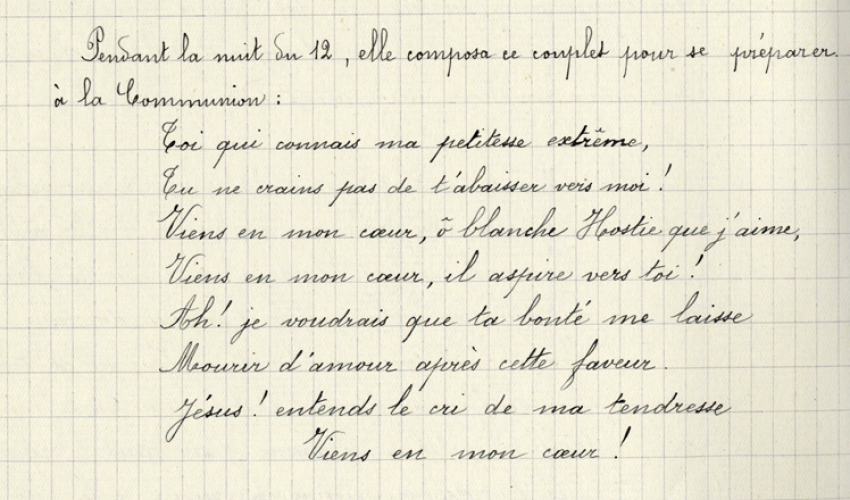 Pendant la nuit du 12, elle composa ce couplet pour se préparer
à la Communion :
Toi qui connais ma petitesse extrême,
Tu ne crains pas de t'abaisser vers moi !
Viens en mon cœur, ô blanche Hostie que j'aime,
Viens en mon cœur, il aspire vers toi !
Ah ! je voudrais que ta bonté me laisse
Mourir d'amour après cette faveur.
Jésus ! entends le cri de ma tendresse
Viens en mon cœur !